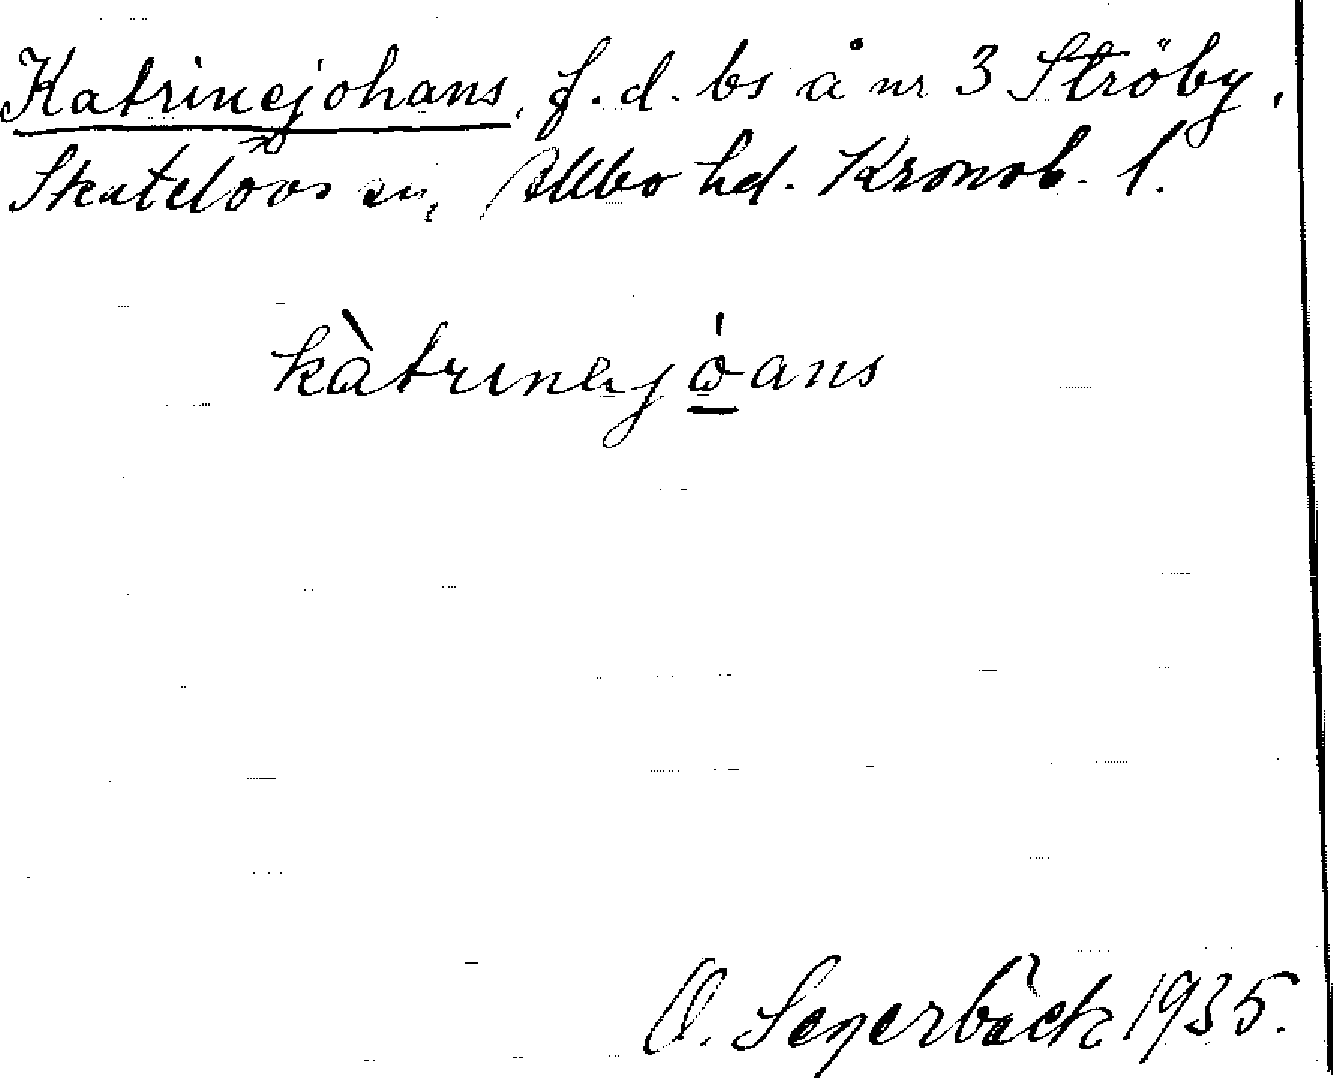 Katrinejohans, f.d. bs å nr 3 Ströby,
Skatelövs sn, Allbo hd. Kronob. l.
kàtrinejóans
O. Segerbäck 1935.